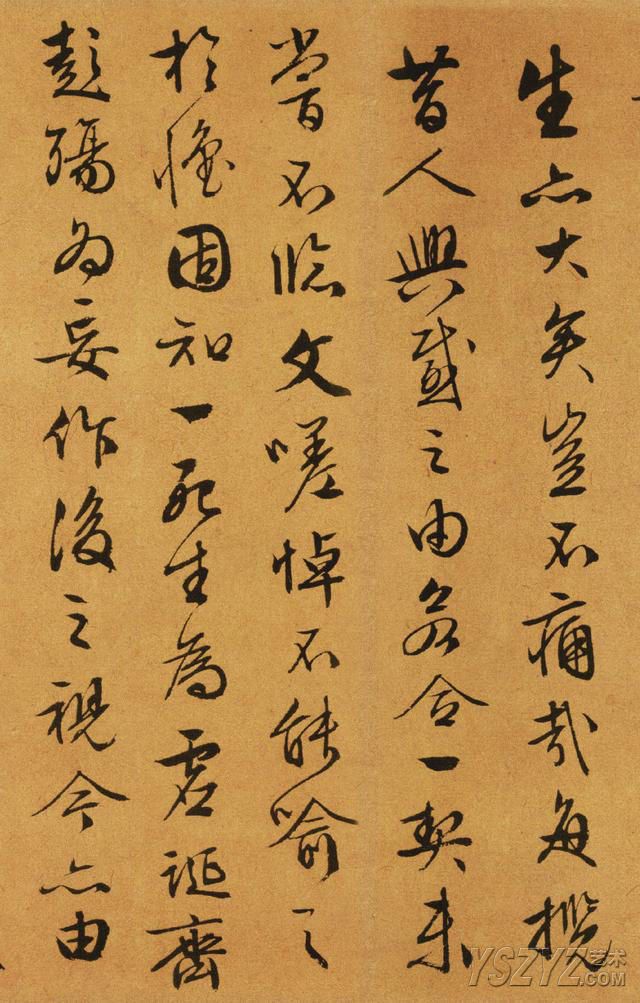 生亦大矣豈不痛哉每攬
昔人興感之由若合一契未
嘗不臨文嗟悼不能喻之
於懷固知一死生為虛誕齊
彭殤為妄作後之視今亦由
YSZYZ艺术.COM